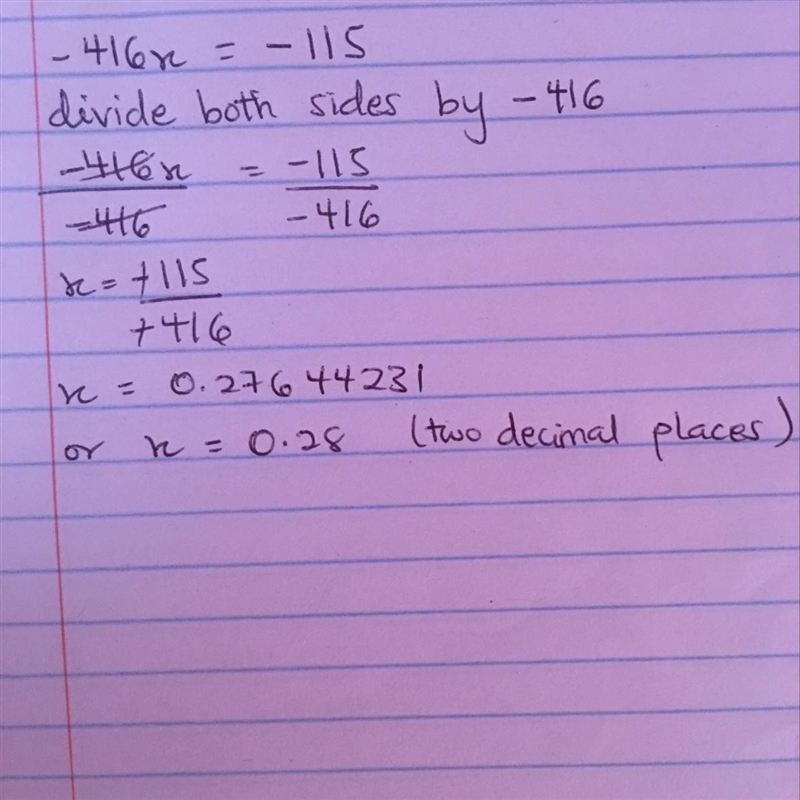 -416x = -115
divide both sides by -416
-416x = -115
-416 -416
x = +115
+416
x = 0.27644231
or x = 0.28 (two decimal places)